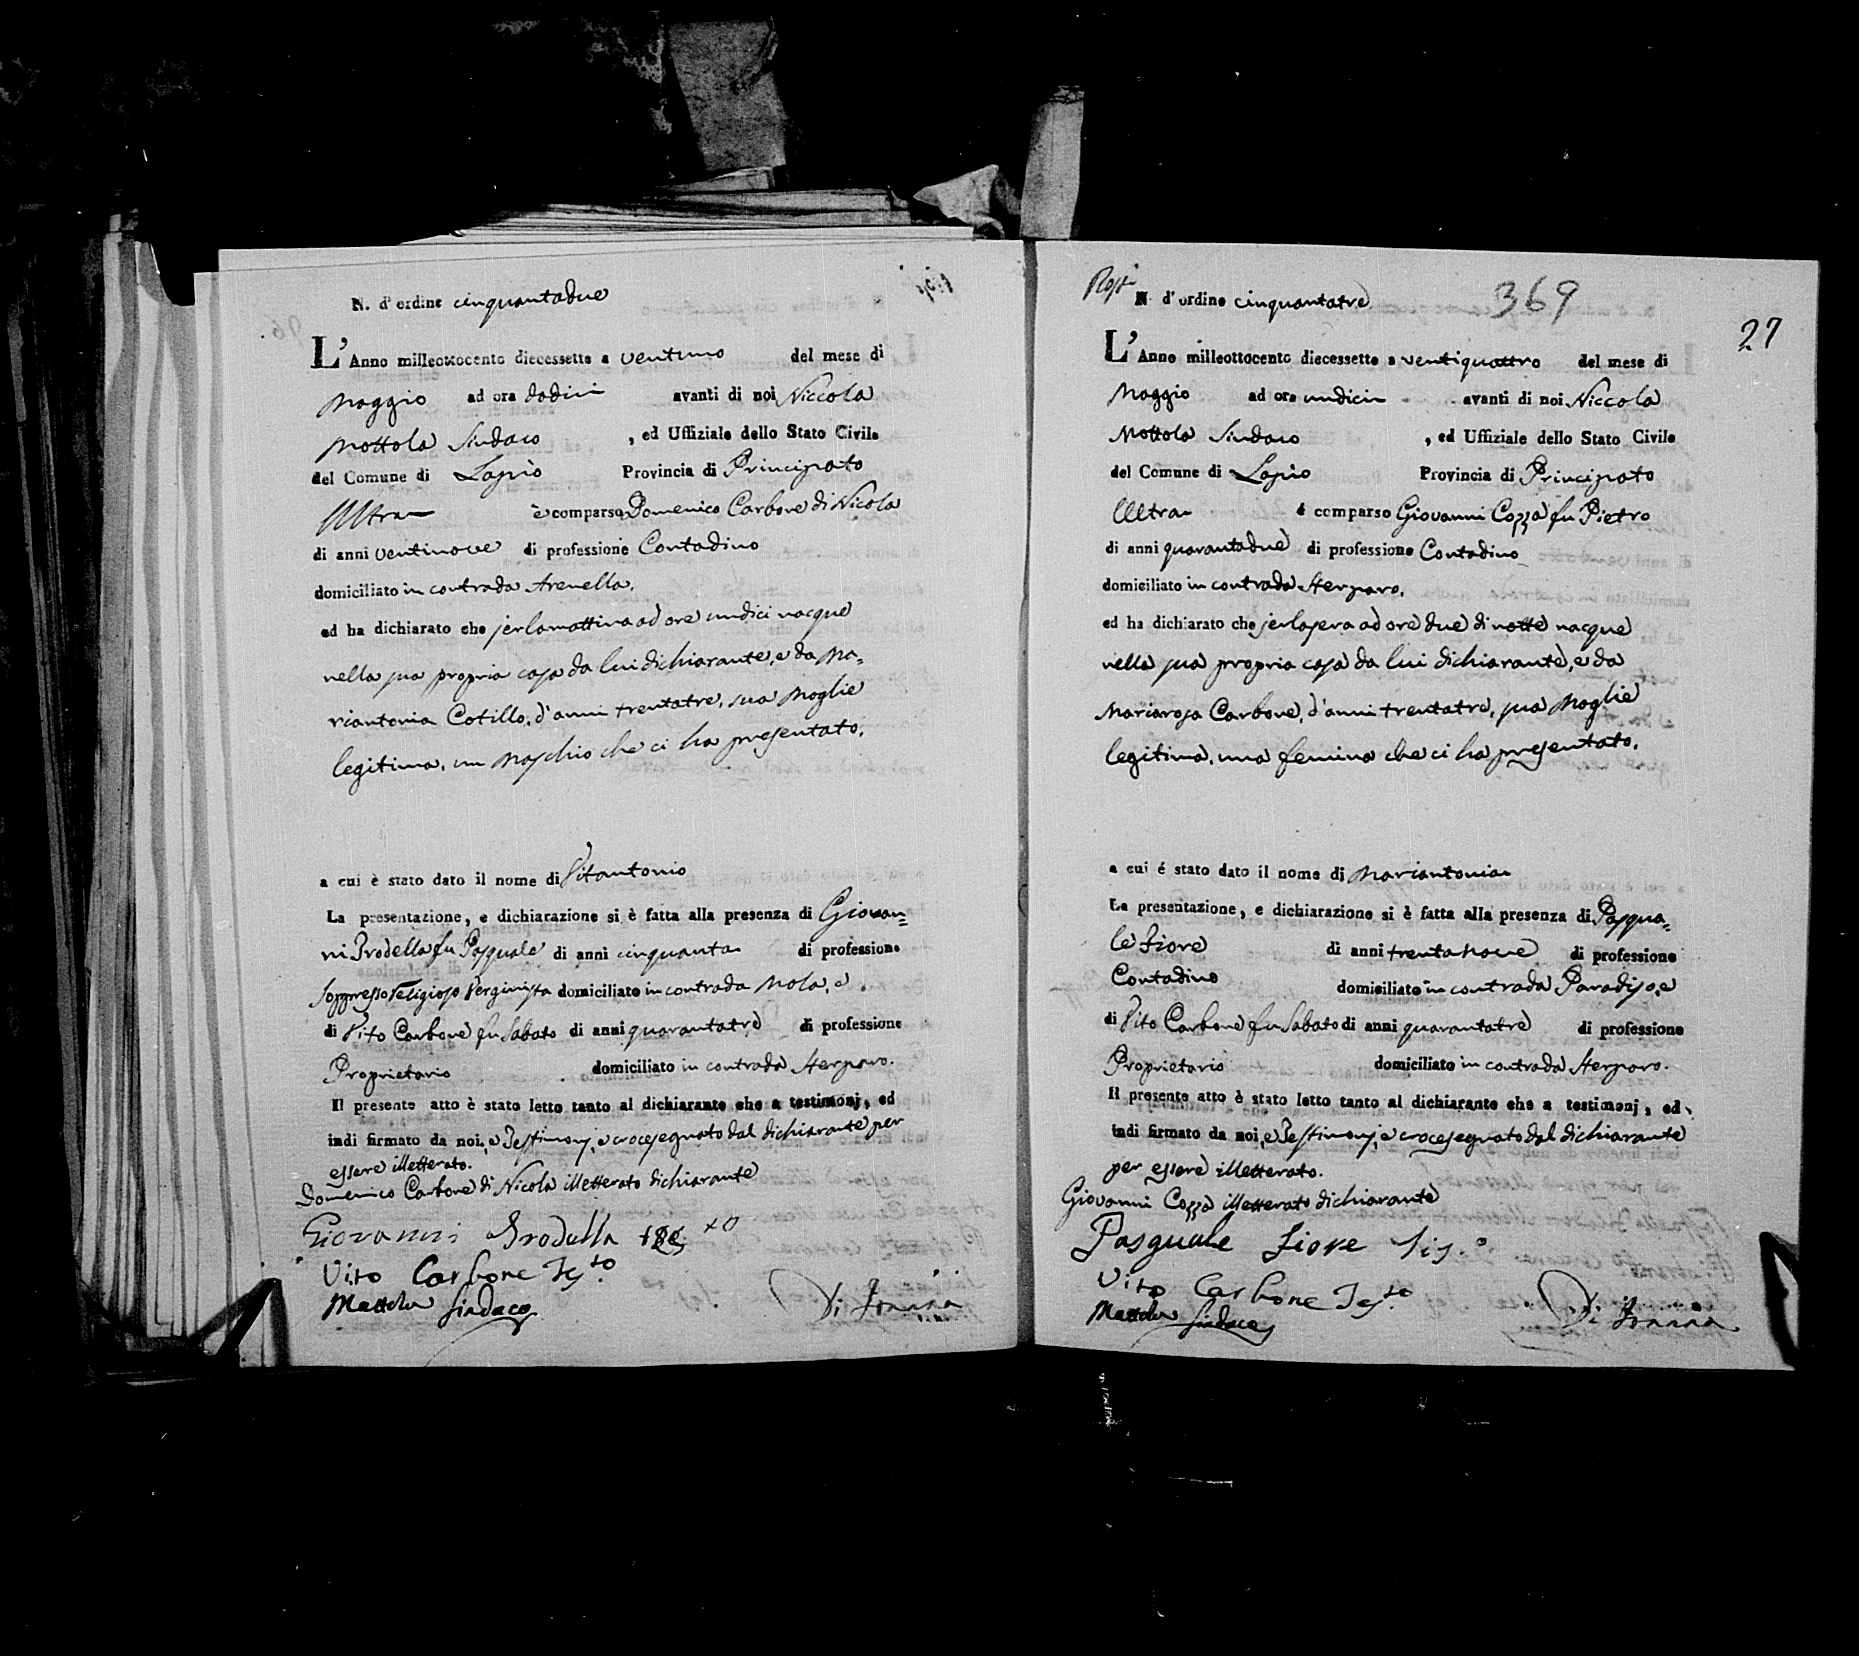 N. d'ordine cinquantadue
L'Anno milleottocento diecessette a ventuno del mese di
Maggio ad ora dodici avanti di noi Niccola
Mottola Sindaco , ed Uffiziale dello Stato Civile
del Comune di Lapio Provincia di Principato
Ultra è comparso Domenico Carbone di Nicola
di anni ventinove di professione Contadino
domiciliato in contrada Arenella.
ed ha dichiarato che jerlamattina ad ore undici nacque
nella sua propria casa da lui dichiarante, e da Ma-
riantonia Cotillo, d'anni trentatre, sua Moglie
legitima, un Maschio che ci ha presentato.
a cui è stato dato il nome di Vitantonio
La presentazione, e dichiarazione si è fatta alla presenza di Giovan=
ni Brodella fu Pasquale di anni cinquanta di professione
Soppresso Religioso Verginista domiciliato in contrada Mola, e
di Vito Carbone fu Sabato di anni quarantatre di professione
Proprietario domiciliato in contrada Sterparo.
Il presente atto è stato letto tanto al dichiarante che a testimonj, ed
indi firmato da noi, e Testimonj, e crocesegnato dal dichiarante per
essere illetterato.
Domenico Carbone di Nicola illetterato dichiarante
Giovanni Brodella
Vito Carbone Tes.to
Mottola Sindaco
Rosi
N d'ordine cinquantatre 369
27
L'Anno milleottocento diecessette a ventiquattro del mese di
Maggio ad ora undici avanti di noi Niccola
Mottola Sindaco , ed Uffiziale dello Stato Civile
del Comune di Lapio Provincia di Principato
Ultra é comparso Giovanni Cozza fu Pietro
di anni quarantadue di professione Contadino
domiciliato in contrada Sterparo.
ed ha dichiarato che jerlasera ad ore due di notte nacque
nella sua propria casa da lui dichiarante, e da
Mariarosa Carbone, d'anni trentatre, sua Moglie
legitima, una femina che ci ha presentato.
a cui é stato dato il nome di Mariantonia
La presentazione, e dichiarazione si è fatta alla presenza di Pasqua=
le Fiore di anni trentanove di professione
Contadino domisiliato in contrada Paradiso, e
di Vito Carbone fu Sabato di anni quarantatre di professione
Proprietario domiciliato in contrada Sterparo.
Il presente atto è stato letto tanto al dichiarante che a testimonj, ed
indi firmato da noi, e Testimonj, e crocesegnato dal dichiarante
per essere illetterato.
Giovanni Cozza illetterato dichiarante
Pasquale Fiore
Vito Carbone Tes.to
Mottola Sindaco